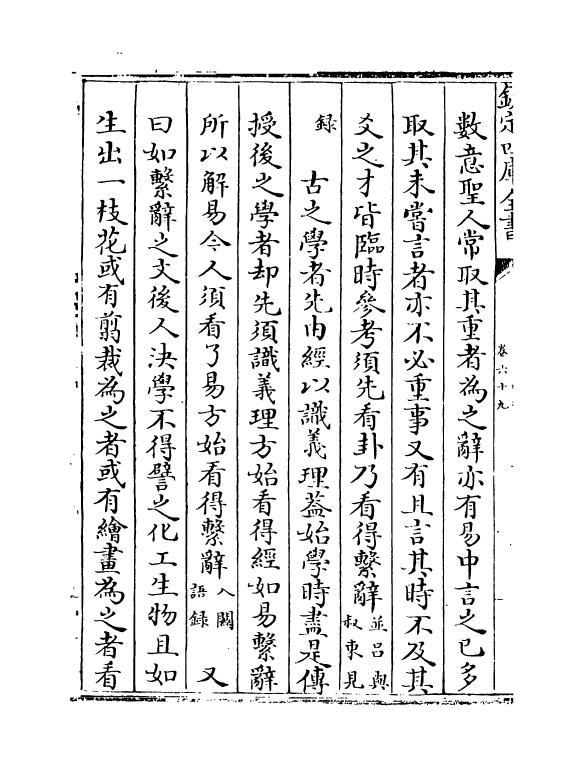 欽定四庫全書
卷六十九
數意聖人常取其重者為之辭亦有易中言之已多
取其未嘗言者亦不必重事又有且言其時不及其
爻之才皆臨時參考須先看卦乃看得繫辭並呂與叔東見
錄　古之學者先由經以識義理葢始學時盡是傳
授後之學者却先須識義理方始看得經如易繫辭
所以解易今人須看了易方始看得繫辭入關語録　又
曰如繫辭之文後人決學不得譬之化工生物且如
生出一枝花或有翦裁為之者或有繪畫為之者看